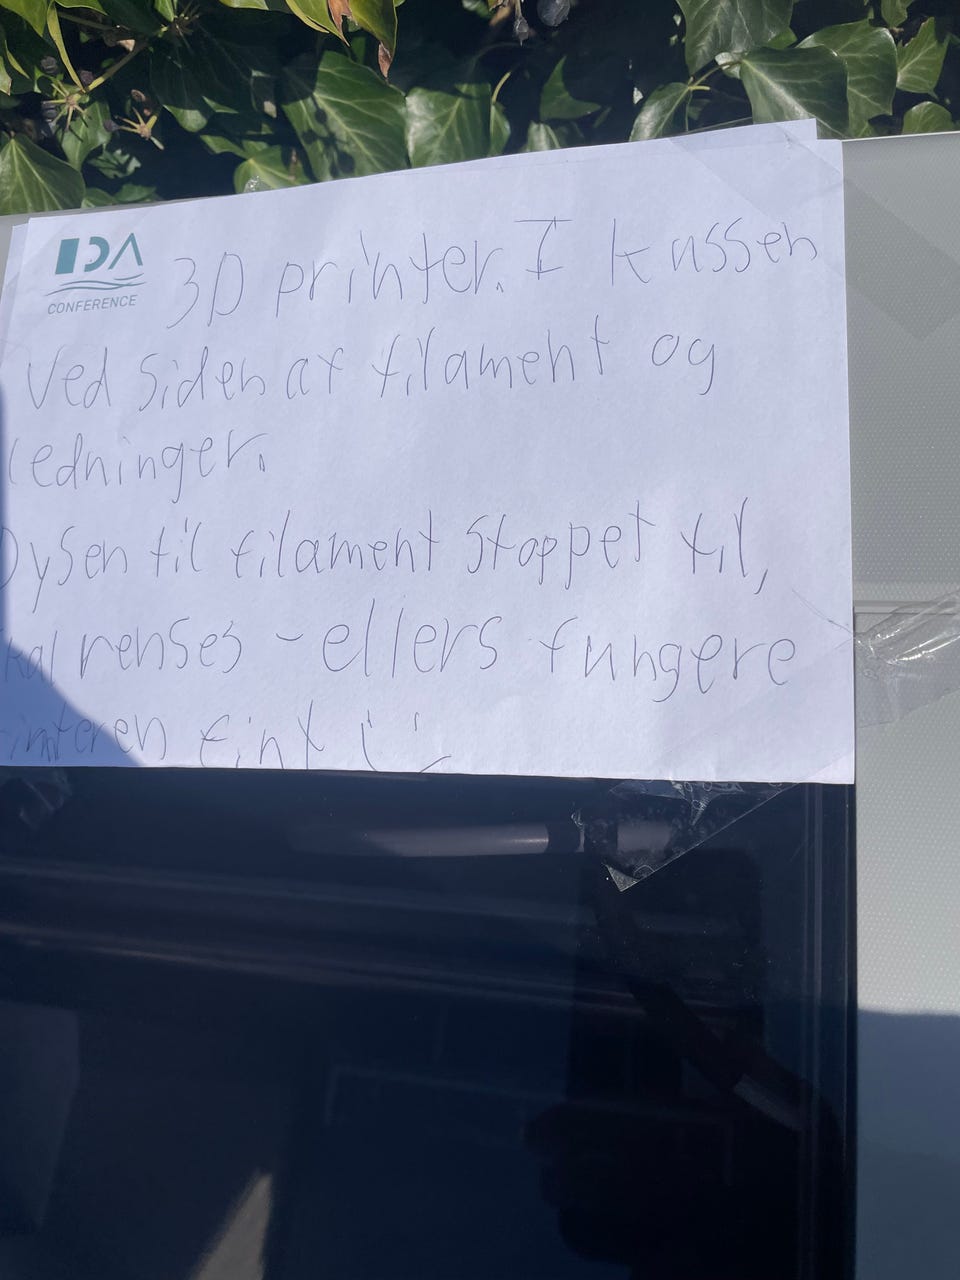 IDA
CONFERENCE
3D printer. I kassen
ved siden af filament og
ledninger.
Dysen til filament stoppet til,
skal renses - ellers fungere
printeren fint :)